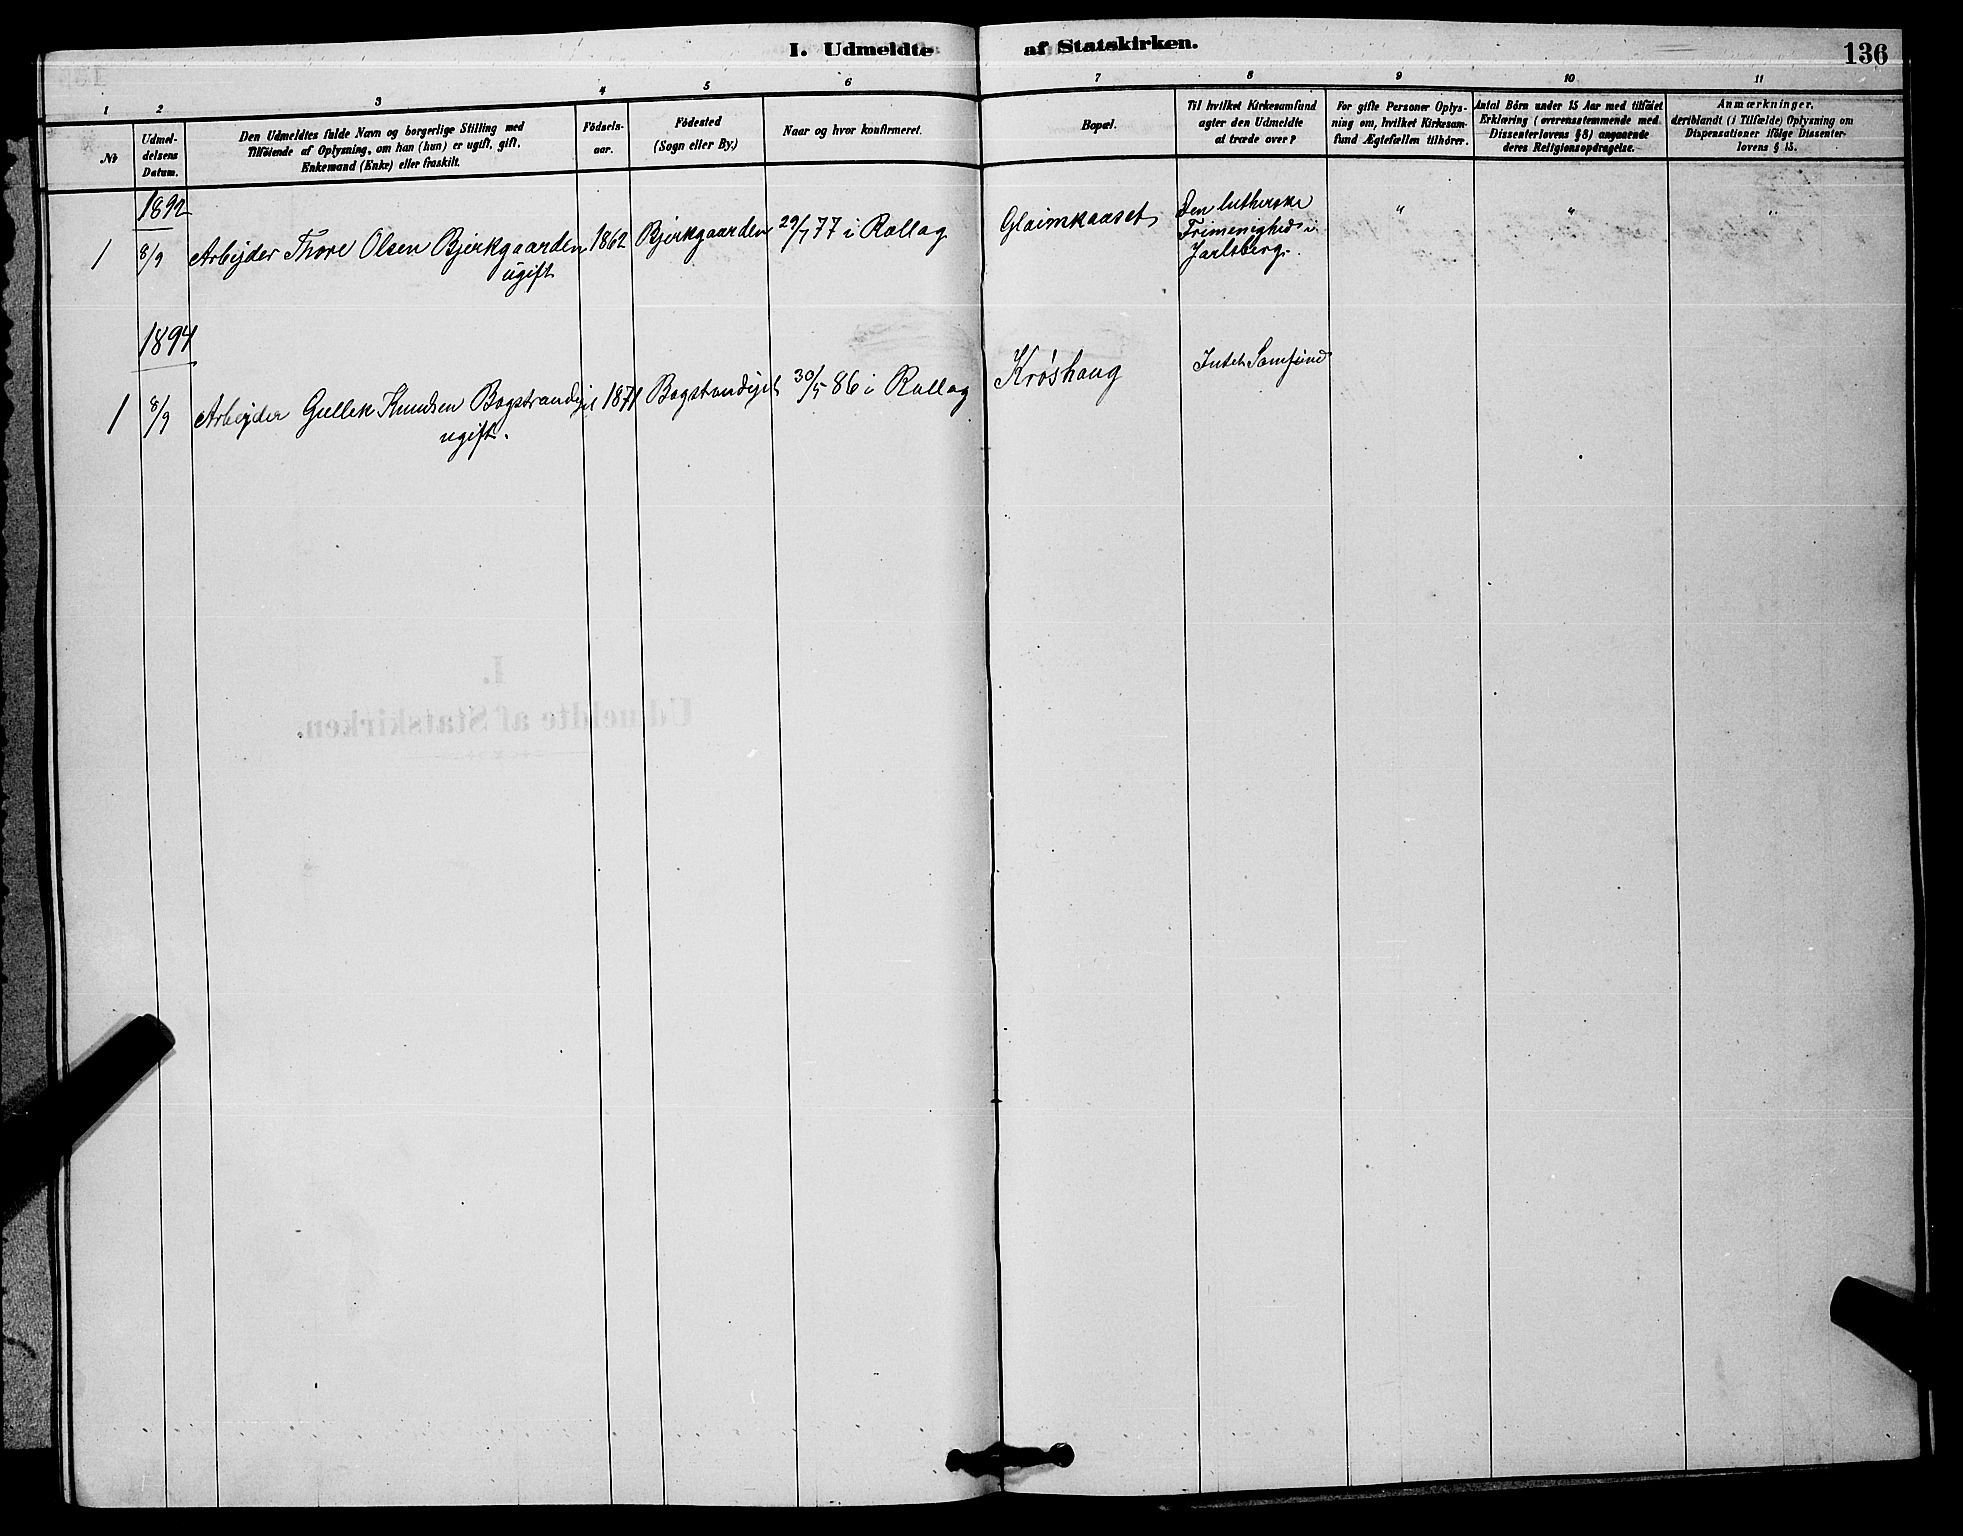 I. Udmeldte af Statskirken.
136
1 2 3 4 5 6 7 8 9 10 11
No
Udmel-
delsens
Datum.
Den Udmeldtes fulde Navn og borgerlige Stilling med
Tilføiende af Oplysning, om han (hun) er ugift, gift,
Enkemand (Enke) eller fraskilt.
Fødsels-
aar.
Fødested
(Sogn eller By.)
Naar og hvor konfirmeret.
Bopæl.
Til hvilket Kirkesamfund
agter den Udmeldte
at træde over?
For gifte Personer Oplys-
ning om, hvilket Kirkesam-
fund Ægtefællen tilhører.
Antal Børn under 15 Aar med tilføiet
Erklæring (overensstemmende med
Dissenterlovens § 8) angaaende
deres Religionsopdragelse.
Anmærkninger,
deriblandt (i Tilfælde) Oplysning om
Dispensationer ifølge Dissenter-
lovens § 15.
1892
1 8/9 Arbejder Thore Olsen Bjerkgaarden 1862 Bjerkgaarden 29/7 77 i Rollag Glaimkaaset Den lutherske " " "
ugift Frimenighed i
Jarlsberg.
1894
1 8/9 Arbejder Gullek Knudsen Bogstrandejet 1871 Bogstrandejet 30/5 86 i Rollag Krøshaug Intet Samfund
ugift.
I.
Udmeldte af Statskirken.